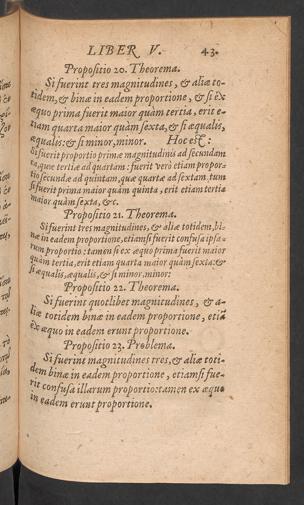 LIBER V. 43.
Propositio 20. Theorema.
Si fuerint tres magnitudines, & aliæ to-
tidem, & binæ in eadem proportione, & si ex
æquo prima fuerit maior quàm tertia, erit e-
tiam quarta maior quàm sexta, & si æqualis,
æqualis: & si minor, minor. Hoc est:
Si fuerit proportio primæ magnitudinis ad secundam
ea, quæ tertiæ ad quartam: fuerit verò etiam propor-
tio secundæ ad quintam, quæ quartæ ad sextam, tum
si fuerit prima maior quàm quinta, erit etiam tertia
maior quàm sexta, &c.
Propositio 21. Theorema.
Si fuerint tres magnitudines, & aliæ totidem, bi-
næ in eadem proportione, etiamsi fuerit confusa ipsa-
rum proportio: tamen si ex æquo prima fuerit maior
quàm tertia, erit etiam quarta maior quàm sexta: &
si æqualis, æqualis, & si minor, minor:
Propositio 22. Theorema.
Si fuerint quotlibet magnitudines, & a-
liæ totidem binæ in eadem proportione, etiā
ex æquo in eadem erunt proportione.
Propositio 23. Problema.
Si fuerint magnitudines tres, & aliæ toti-
dem binæ in eadem proportione, etiamsi fue-
rit confusa illarum proportio: tamen ex æquo
in eadem erunt proportione.